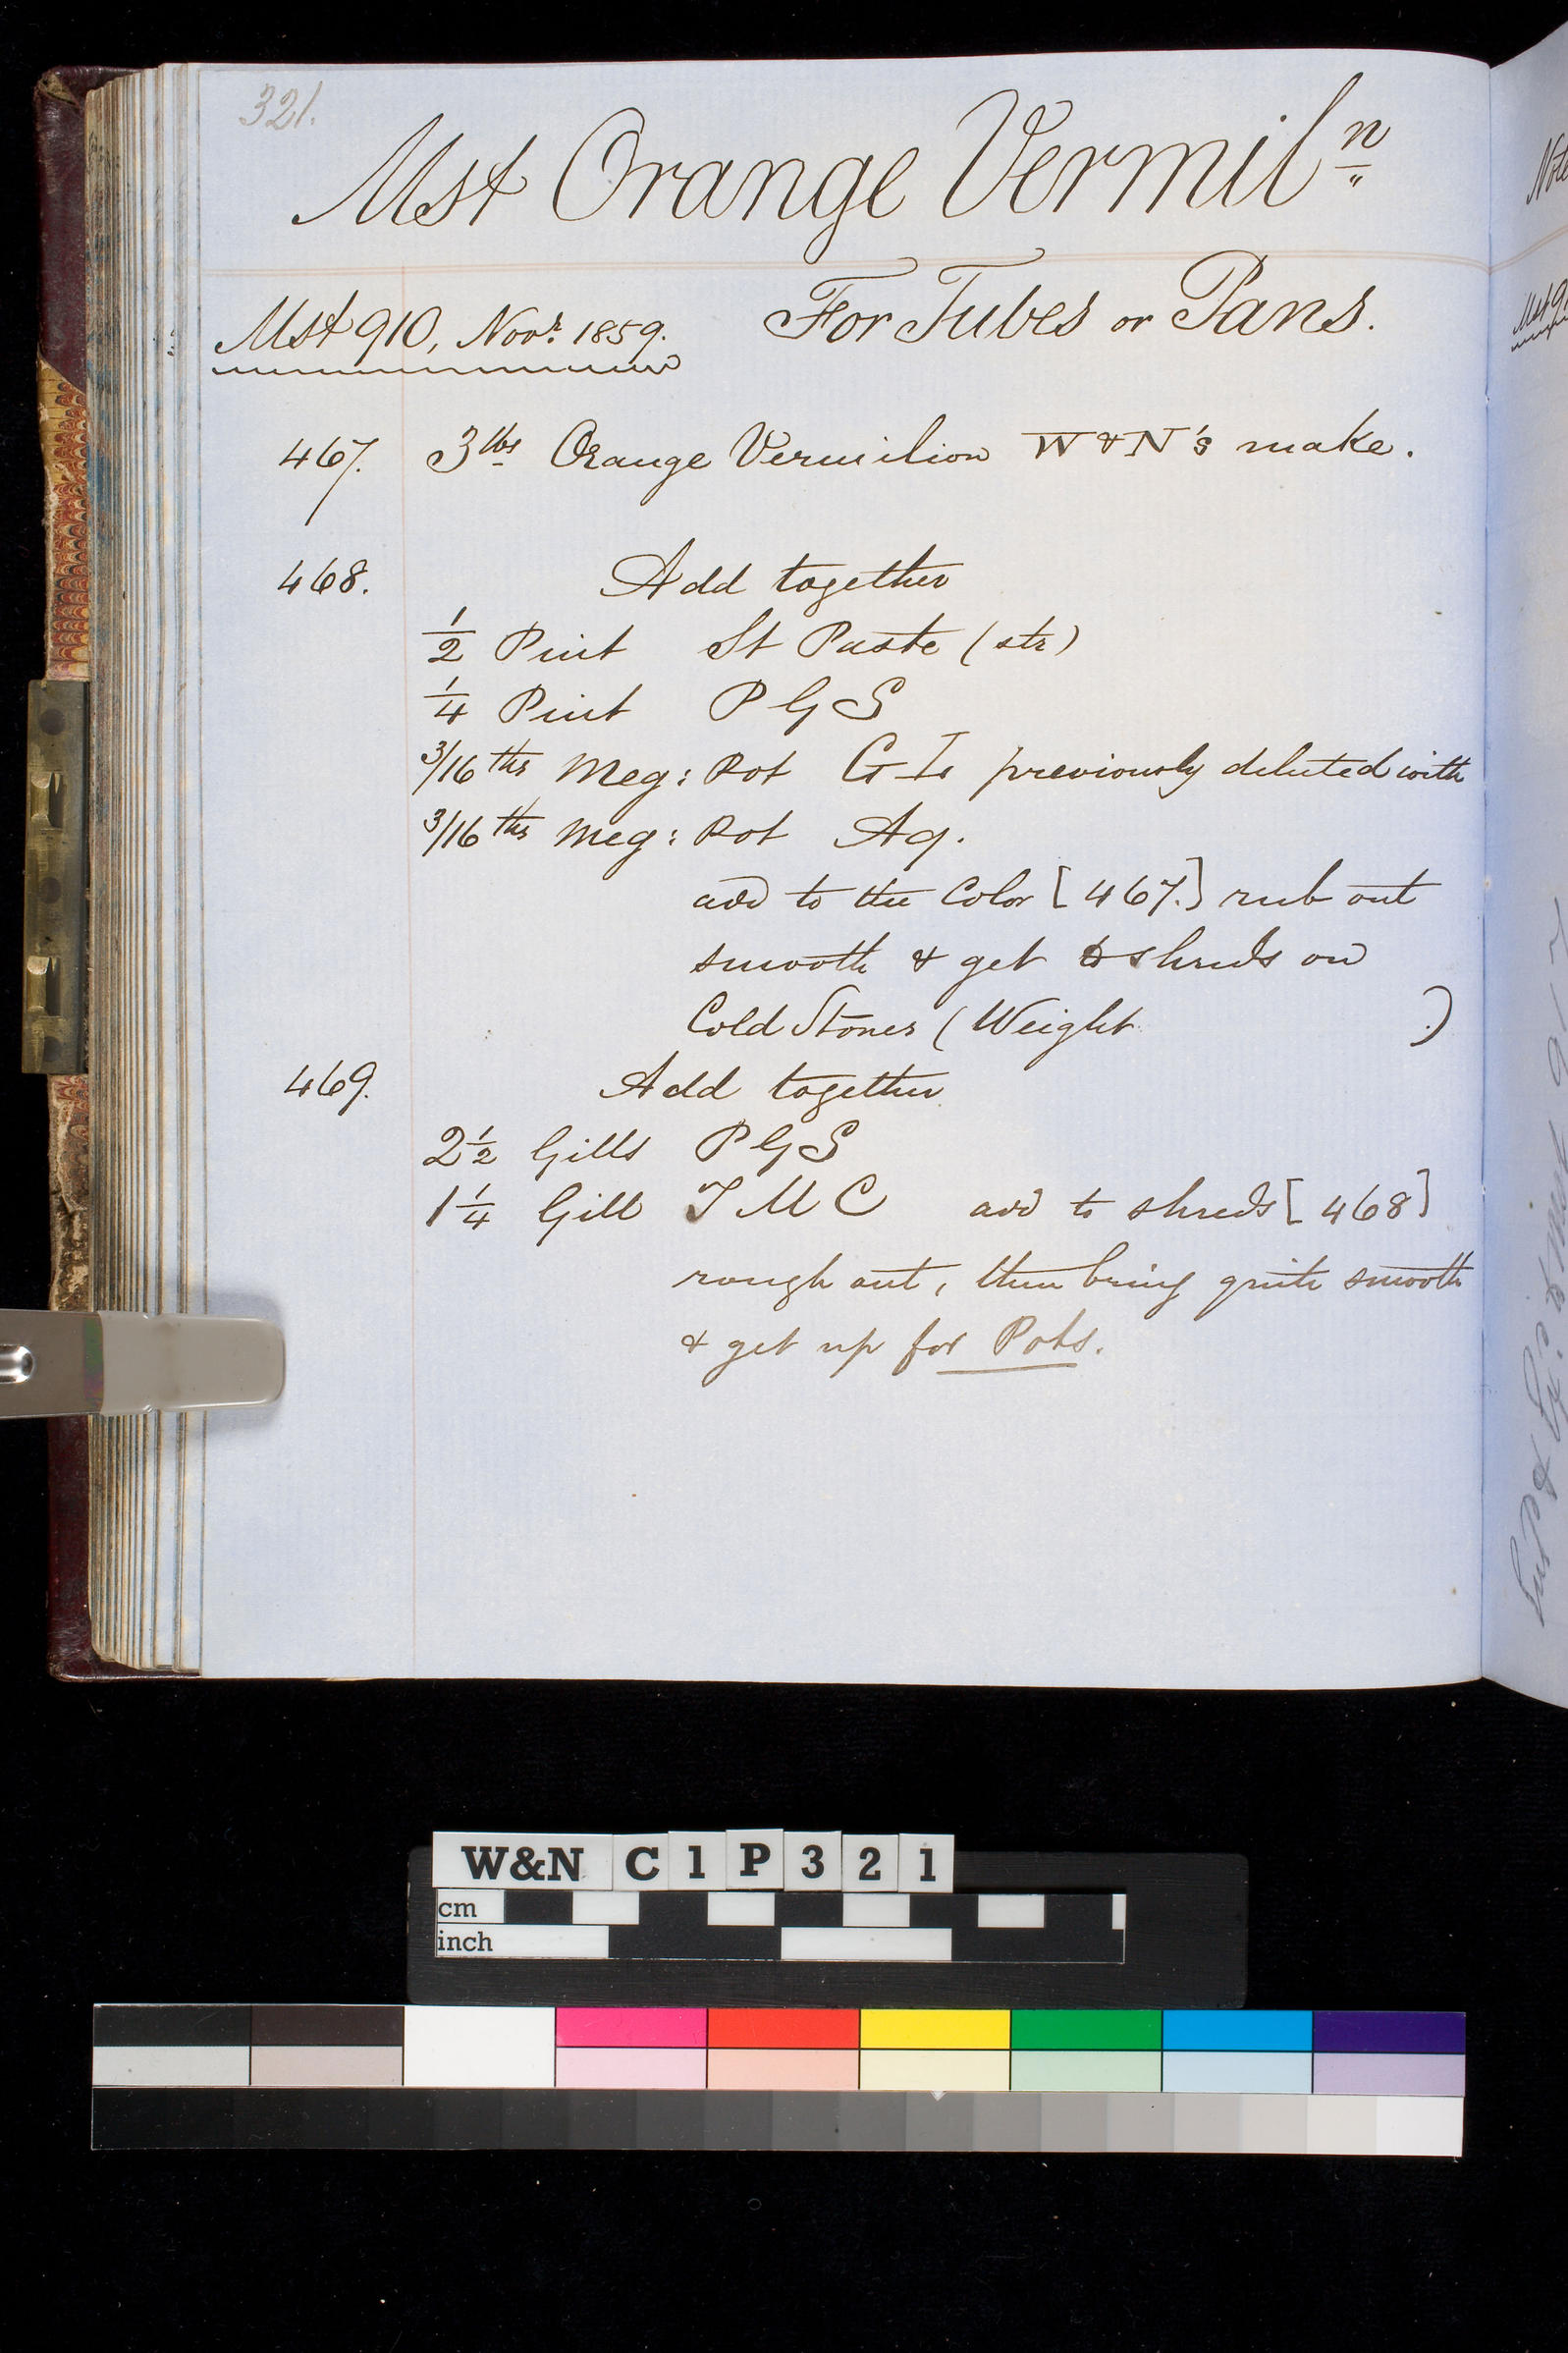 321.
Mst Orange Vermil<sup>n</sup>
Mst 910, Nov<sup>r</sup>. 1859. For Tubes or Pans.
467. 3 lbs Orange Vermilion W & N's make.
468. Add together
1/2 Pint St Paste (str)
1/4 Pint P G S
3/16 ths Meg: Pot G I previously diluted with
3/16 ths Meg: Pot Aq.
add to the Color [467.] rub out
smooth & get to shreds on
Cold Stones (Weight )
469. Add together
2 1/2 Gills P G S
1 1/4 Gill T M C add to shreds [468]
rough out, then bring quite smooth
& get up for Pots.
W&N C1P321
cm
inch